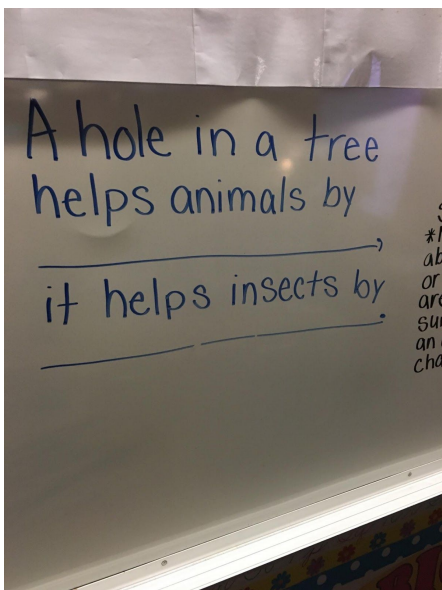 A hole in a tree
helps animals by
____________,
it helps insects by
____________.
or
an